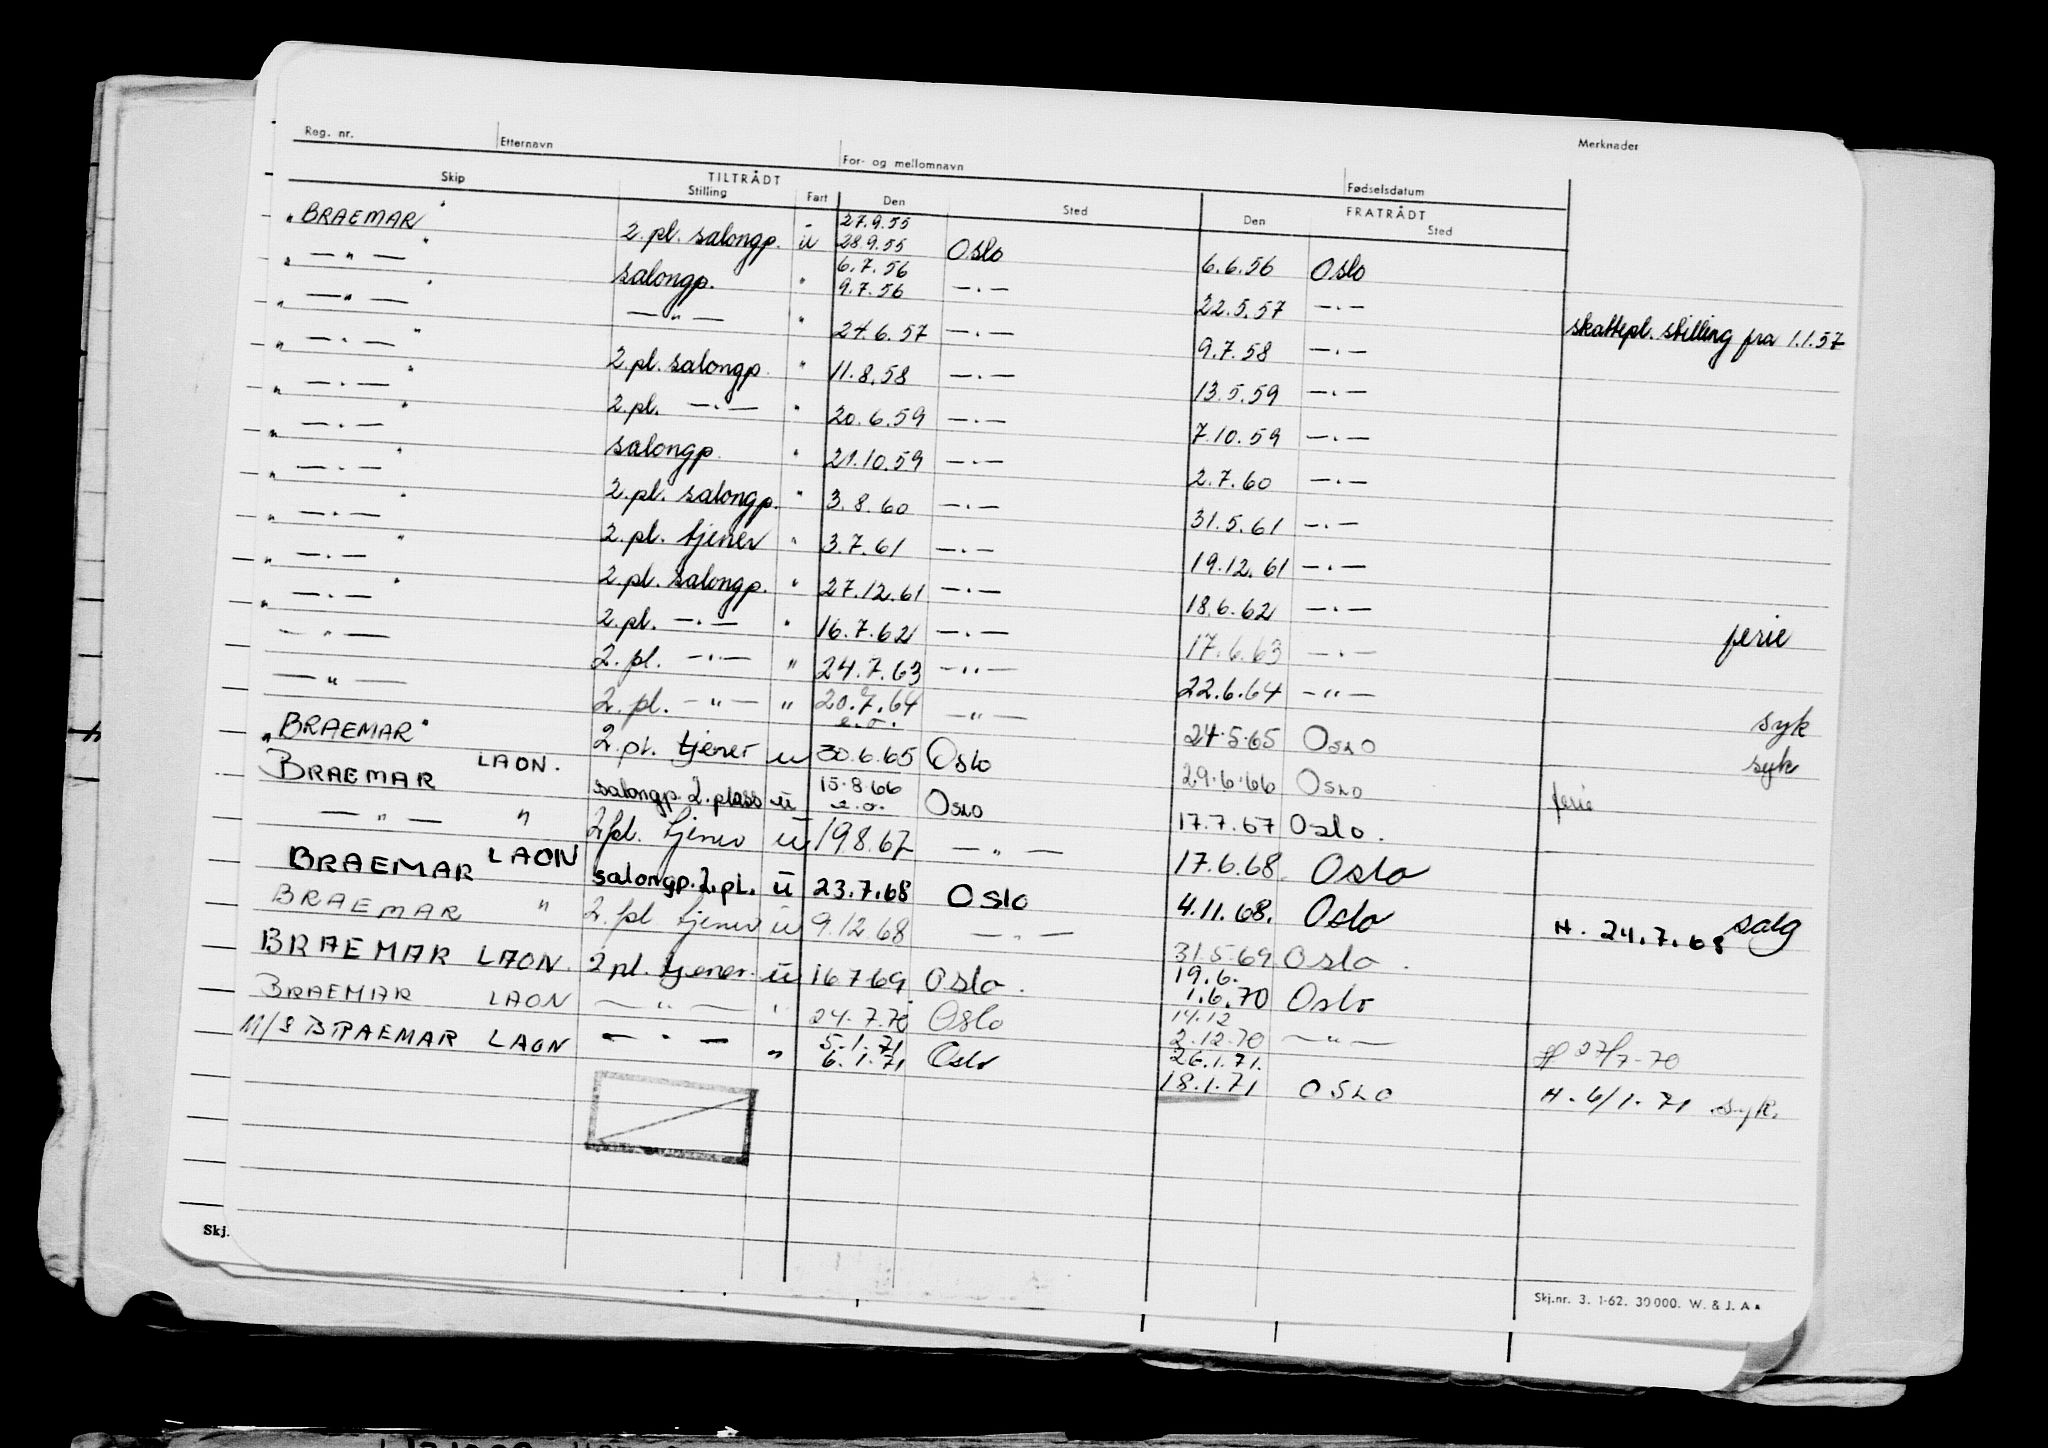 Reg. nr. Etternavn For- og mellomnavn Fødselsdatum Merknader
TILTRÅDT FRATRÅDT
Skip Stilling Fart Den Sted Den Sted
27.9.55
"BRAEMAR" 2. pl. salongp. u 28.9.55 Oslo 6.6.56 Oslo
6.7.56
" — " — " salongp. " 9.7.56 — . — 22.5.57 — . —
" — " — " — " — " 24.6.57 — . — 9.7.58 — . — skattepl. stilling fra 1.1.57
" — . — " 2. pl. salongp. " 11.8.58 — . — 13.5.59 — . —
" — . — " 2. pl. — . — " 20.6.59 — . — 7.10.59 — . —
" — . — " salongp. " 21.10.59 — . — 2.7.60 — . —
" — . — " 2. pl. salongp. " 3.8.60 — . — 31.5.61 — . —
" — . — " 2. pl. tjener " 3.7.61 — . — 19.12.61 — . —
" — . — " 2. pl. salongp. " 27.12.61 — . — 18.6.62 — . —
" — . — " 2. pl. — . — " 16.7.62 — . — 17.6.63 — . — ferie
— " — 2. pl. — . — " 24.7.63 — " — 22.6.64 — " —
— " — 2. pl. — " — " 20.7.64 — " — 24.5.65 Oslo syk
e.o.
"BRAEMAR" 2. pl. tjener u 30.6.65 Oslo 29.6.66 Oslo syk
BRAEMAR LAON. salongp. 2. plass u 15.8.66 Oslo 17.7.67 Oslo. ferie
e.o.
— " — " 2 pl. tjener u 19.8.67 — " — 17.6.68 Oslo
BRAEMAR LAON salongp. 2. pl. u 23.7.68 Oslo 4.11.68. Oslo H. 24.7.68 salg
BRAEMAR " 2. pl tjener u 9.12.68 — " — 31.5.69 Oslo.
19.6.
BRAEMAR LAON. 2 pl. tjener. u 16 7 69 Oslo. 1.6.70 Oslo
14.12
BRAEMAR LAON — " — " 24.7.70 Oslo 2.12.70 — " — 27/7-70
5.1.71 26.1.71.
M/S BRAEMAR LAON — . — " 6.1.71 Oslo 18.1.71 OSLO H. 6/1.71 syk.
Skj.
Skj.nr. 3. 1-62. 30 000. W. & J. A